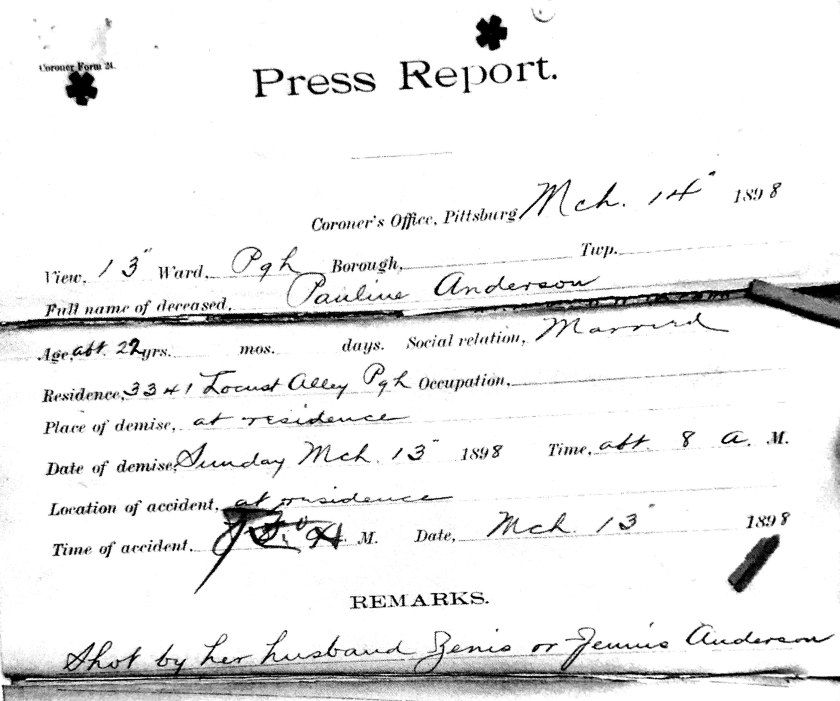 Coroner Form 21.
Press Report.
Coroner's Office, Pittsburg Mch. 14" 1898
View, 13" Ward, Pgh Borough, Twp.
Full name of deceased, Pauline Anderson
Age, abt. 22 yrs. mos. days. Social relation, Married
Residence, 3341 Locust Alley Pgh Occupation,
Place of demise, at residence
Date of demise, Sunday Mch. 13" 1898 Time, abt. 8 A. M.
Location of accident, at residence
Time of accident, M. Date, Mch. 13" 1898
REMARKS.
Shot by her husband Zenis or Jennis Anderson